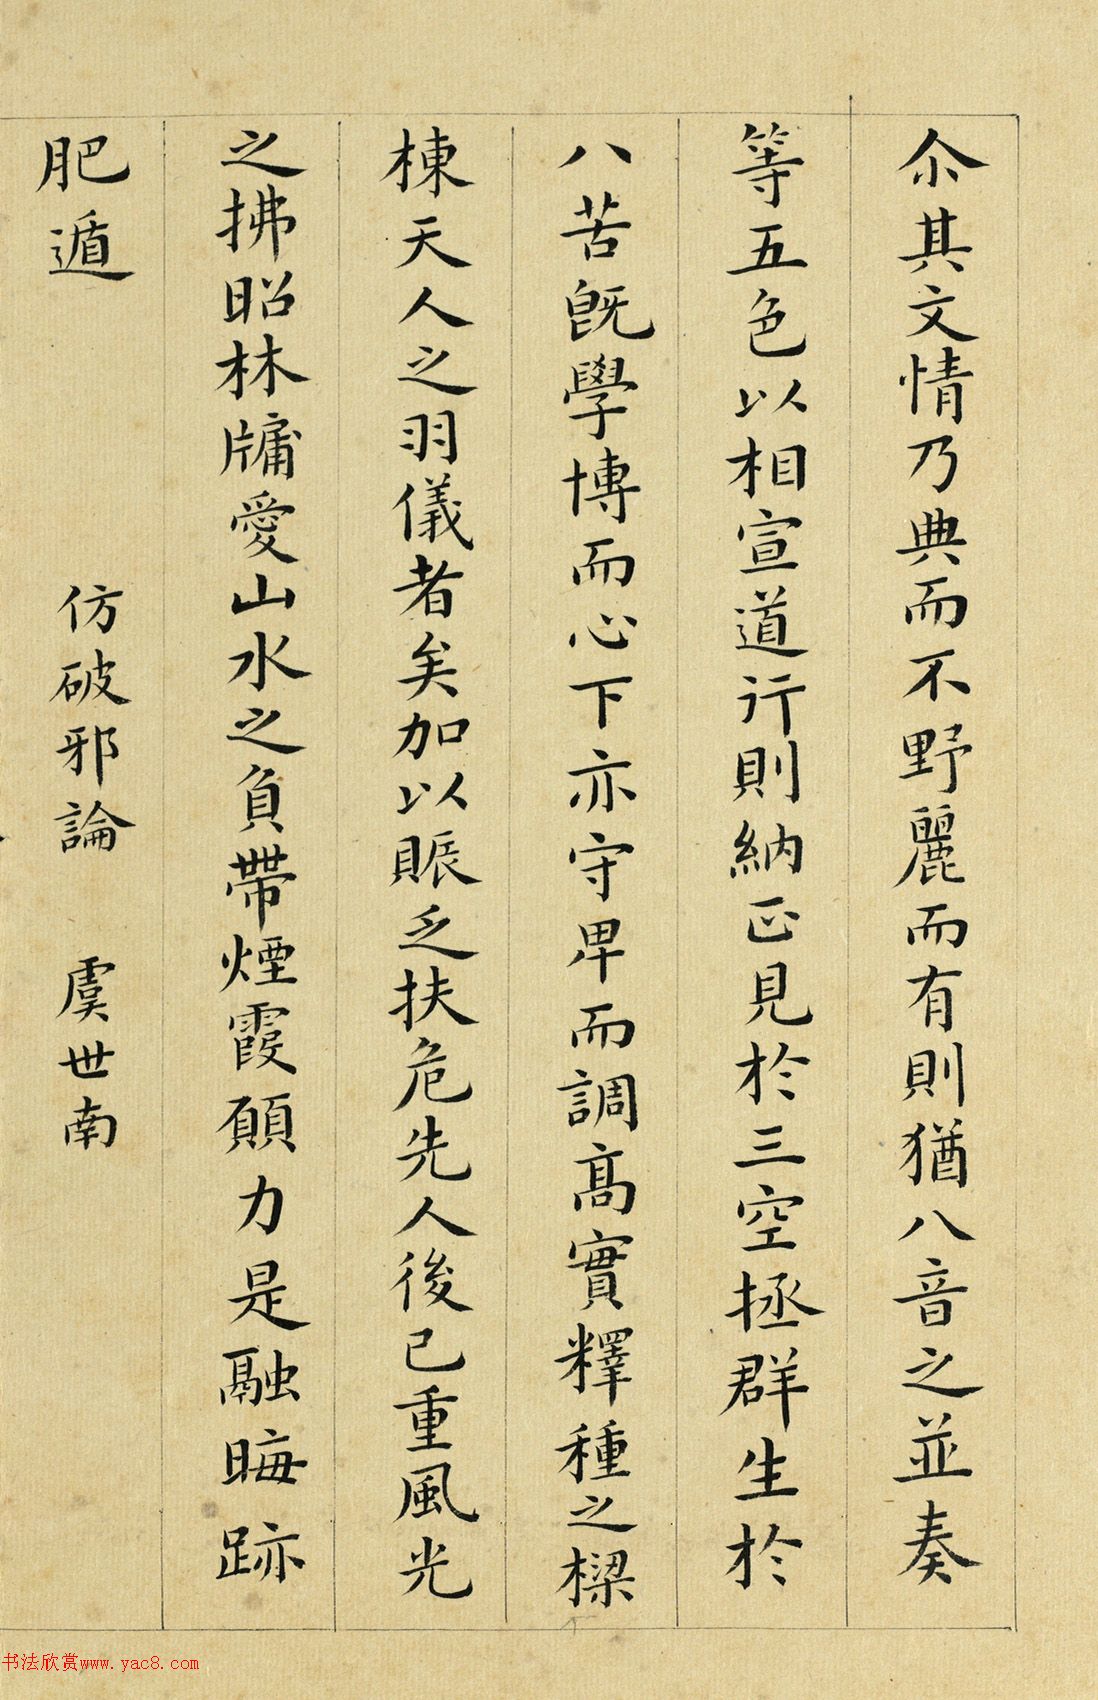 尒其文情乃典而不野麗而有則猶八音之並奏
等五色以相宣道行則納正見於三空拯群生於
八苦旣學博而心下亦守卑而調髙實釋種之樑
棟天人之羽儀者矣加以賑乏扶危先人後已重風光
之拂昭林牗愛山水之負帶煙霞願力是融晦跡
肥遁
仿破邪論 虞世南
书法欣赏www.yac8.com